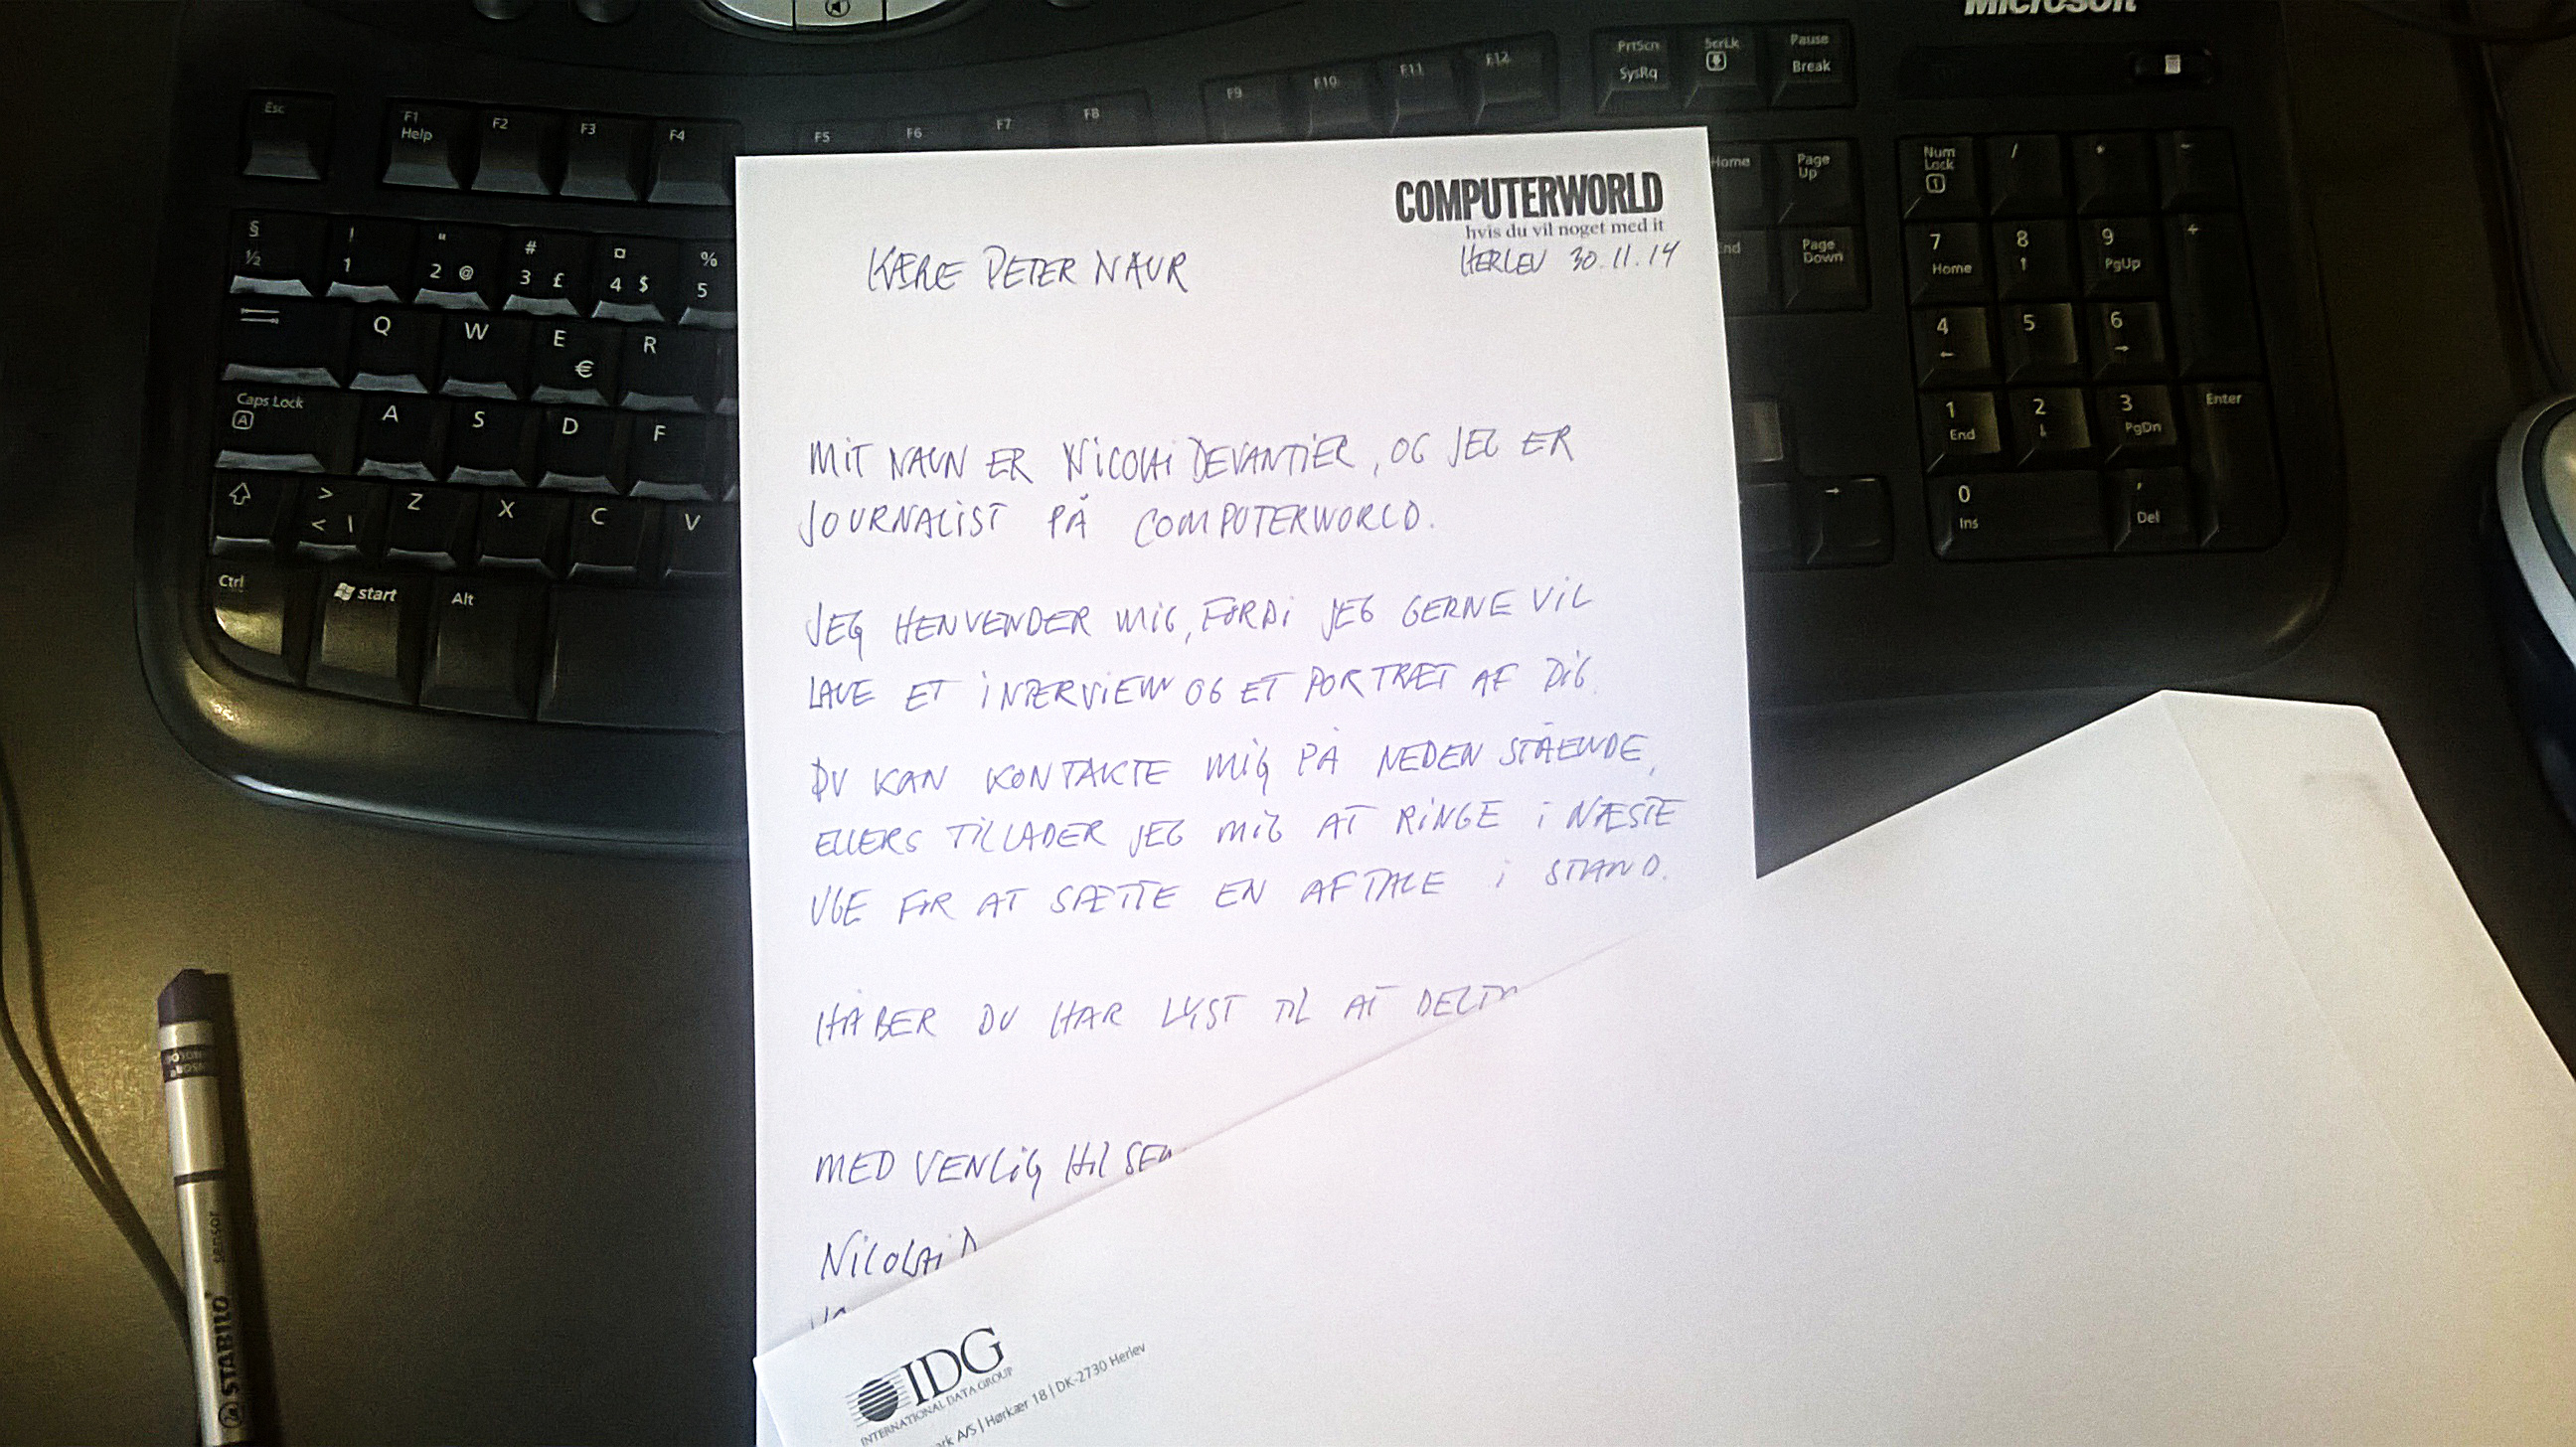 Microsoft
Esc
F1
Help
F2
F3
F4
F5
F6
F7
F8
F9
F10
F11
F12
PrtScn
SysRq
ScrLk
Pause
Break
§
½
!
1
"
2 @
#
3 £
¤
4 $
%
5
Home
Page
Up
Num
Lock
1
/
*
-
Q
W
E
€
R
nd
Page
Down
7
Home
8
↑
9
PgUp
+
Caps Lock
A
A
S
D
F
4
←
5
6
→
>
< \
Z
X
C
V
1
End
2
↓
3
PgDn
Enter
Ctrl
start
Alt
→
0
Ins
,
Del
COMPUTERWORLD
hvis du vil noget med it
HERLEV 30.11.14
KÆRE PETER NAUR
MIT NAVN ER NICOLAI DEVANTIER, OG JEG ER
JOURNALIST PÅ COMPUTERWORLD.
JEG HENVENDER MIG, FORDI JEG GERNE VIL
LAVE ET INTERVIEW OG ET PORTRÆT AF DIG.
DU KAN KONTAKTE MIG PÅ NEDENSTÅENDE,
ELLERS TILLADER JEG MIG AT RINGE I NÆSTE
UGE FOR AT SÆTTE EN AFTALE I STAND.
HÅBER DU HAR LYST TIL AT DELTA
MED VENLIG HILSEN
NICOLAI D
IDG
INTERNATIONAL DATA GROUP
ark A/S | Hørkær 18 | DK-2730 Herlev
STABILO
sensor